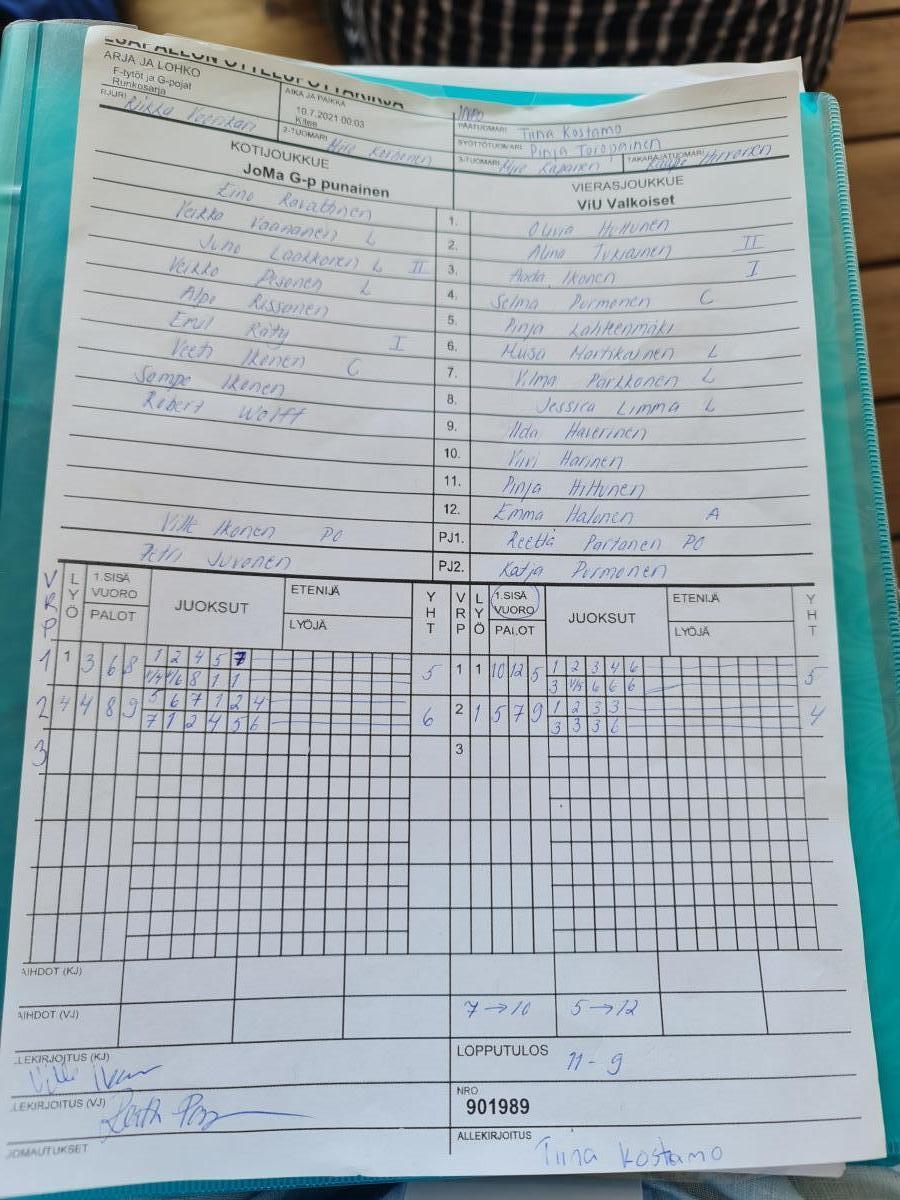 ARJA JA LOHKO
F-tytöt ja G-pojat
Runkosarja
AIKA JA PAIKKA
10.7.2021 00:03
Kitee
PÄÄTUOMARI Tiina Kostamo
SYÖTTÖTUOMARI Pinja Toropainen
2-TUOMARI
3-TUOMARI
TAKARAJATUOMARI Hirvonen
KOTIJOUKKUE
JoMa G-p punainen
VIERASJOUKKUE
ViU Valkoiset
Eino 1. Olivia Huttunen
Veikko Väänänen L 2. Alina Tukiainen II
Juho Laakkonen L II 3. Aada Ikonen I
Veikko Pesonen L 4. Selma Purmonen C
Alpo Rissanen 5. Pinja Lähteenmäki
Emil Räty I 6. Miisa Martikainen L
Veeti Ikonen C 7. Vilma Parkkonen L
Sampo Ikonen 8. Jessica Limma L
Robert Wolff 9. Iida Haverinen
10. Viivi Harinen
11. Pinja Hiltunen
12. Emma Halonen A
Ville Ikonen PO PJ1. Reetta Partanen PO
Petri Juvonen PJ2. Katja Purmonen
VRP LYÖ 1.SISÄ VUORO PALOT JUOKSUT ETENIJÄ LYÖJÄ YHT
VRP LYÖ 1.SISÄ VUORO PALOT JUOKSUT ETENIJÄ LYÖJÄ YHT
1 1 3 6 8 1 2 4 5 7 5 1 1 10 12 5 1 2 3 4 6 5
8 1 1 3 6 6 6
2 4 4 8 9 5 6 7 1 2 4 6 2 1 5 7 9 1 2 3 3 4
7 1 2 4 5 6 3 3 3 6
3 3
AIHDOT (KJ)
AIHDOT (VJ) 7→10 5→12
LLEKIRJOITUS (KJ)
LOPPUTULOS 11-9
LLEKIRJOITUS (VJ)
NRO
901989
JOMAUTUKSET
ALLEKIRJOITUS Tiina Kostamo